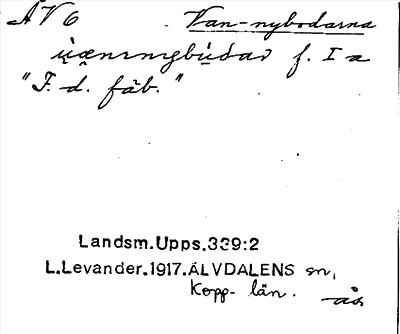 ÄV6 Van-nybodarna
f. I a
"F. d. fäb."
Landsm.Upps.339:2
L.Levander.1917.ÄLVDALENS sn,
Kopp- län.